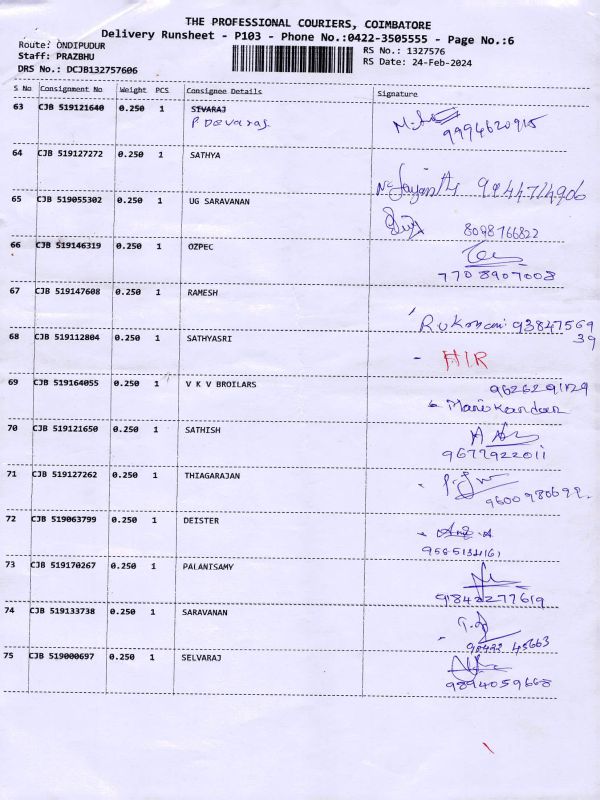 THE PROFESSIONAL COURIERS, COIMBATORE
Delivery Runsheet - P103 - Phone No.:0422-3505555 - Page No.:6
Route: ONDIPUDUR
Staff: PRAZBHU
DRS No.: DCJB132757606
RS No.: 1327576
RS Date: 24-Feb-2024
S No Consignment No Weight PCS Consignee Details Signature
63 CJB 519121640 0.250 1 SIVARAJ
P Devaraj
9994620915
64 CJB 519127272 0.250 1 SATHYA
9244714906
65 CJB 519055302 0.250 1 UG SARAVANAN
8098766822
66 CJB 519146319 0.250 1 OZPEC
7708907008
67 CJB 519147608 0.250 1 RAMESH
Rukmani 93847569
39
68 CJB 519112804 0.250 1 SATHYASRI
- HIR
69 CJB 519164055 0.250 1 V K V BROILARS
Manikandan
70 CJB 519121650 0.250 1 SATHISH
9677922011
71 CJB 519127262 0.250 1 THIAGARAJAN
72 CJB 519063799 0.250 1 DEISTER
73 CJB 519170267 0.250 1 PALANISAMY
9842277619
74 CJB 519133738 0.250 1 SARAVANAN
75 CJB 519000697 0.250 1 SELVARAJ
9894059668